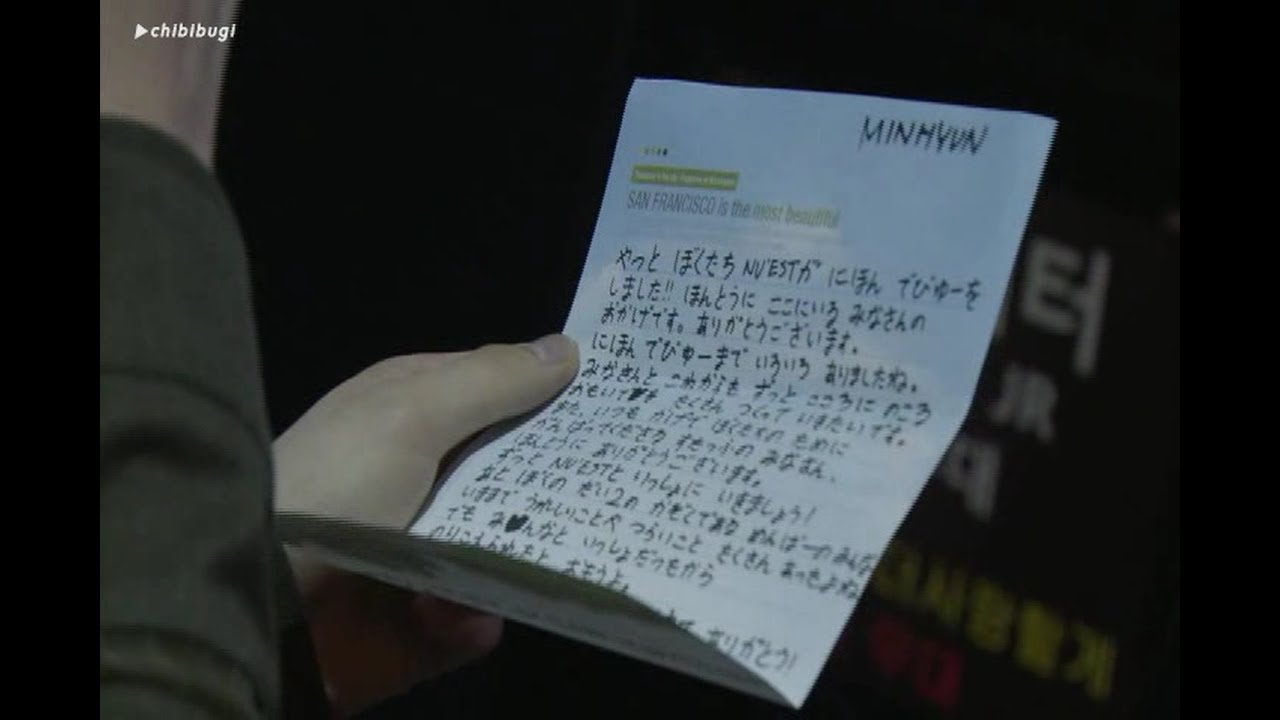 chibibugi
MINHYUN
SAN FRANCISCO is the most beautiful
やっと ぼくたち NU'ESTが にほん でびゅーを
しました!! ほんとうに ここにいる みなさんの
おかげです。ありがとうございます。
にほん でびゅーまで いろいろ ありましたね。
みなさんと これからも ずっと こころに のころ
おもいで たくさん つくって いきたいです。
また、いつも かげで ぼくたちの ために
がんばってくださる すたっふの みなさん、
ほんとうに ありがとうございます。
ずっと NU'ESTと いっしょに いきましょう!
あと ぼくの だい2の かぞくである めんばーの みんな
いままで うれしいことや つらいこと たくさん あったよね
でも み♥んなと いっしょだったから
のりこえられたと おもうよ。
ありがとう!
터
JR
대